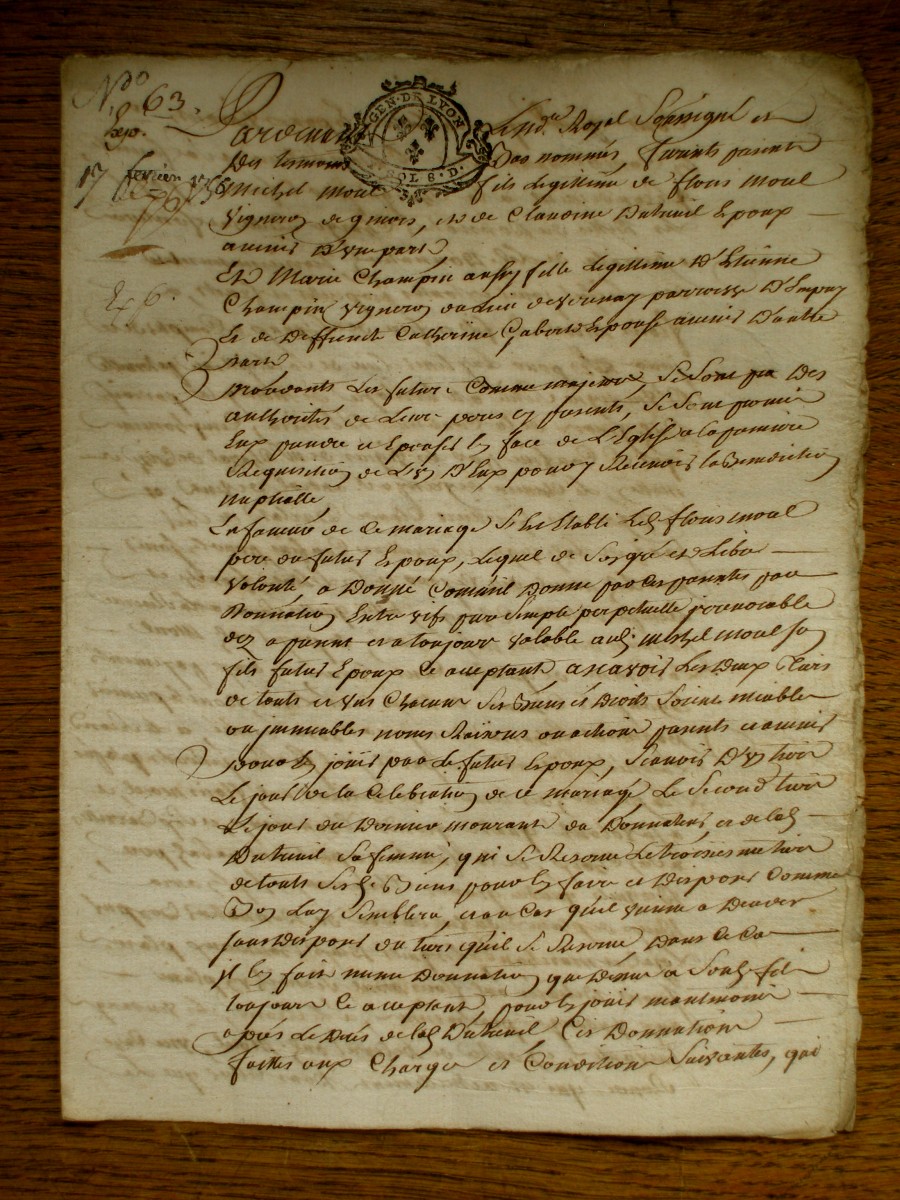 No 63.
Exp.
17 février
GEN. DE LYON
SOL 8. D.
Pardevant Le Nore Royal Soussigné et
Des temoins Bas nommés, furents presents
Michel Moul fils Legittime de flous Moul
Vigneron de et de Claudine Duteuil Epoux
avenir D'une part
Et Marie Champin aussy fille Legittime D'Etienne
Champin Vigneron du Lieu de Vernay parroisse D'
Et de Deffuncte Catherine Epouse avenir D'autre
part
Les futurs Comme majeurs, se sont Des
authorités de Leurs peres et parents, se sont promis
Eux prendre et Epouser En face de L'Eglise a la premiere
Requisition de L'un D'Eux pour y Recevoir la Benediction
nuptialle
En faveur de Ce mariage S'Est Etabli Led. flous moul
pere du futur Epoux, Lequel de Son gré et Libre
Volonté, a Donné Comm'il Donne par Ces presentes par
Donnation Entre vifs pure Simple perpetuelle irrevocable
dez a present et a toujours valable aud. michel moul son
fils futur Epoux Ce acceptant, ascavoir Les Deux tiers
de touts et uns chacuns Ses Biens et Droits Soient meubles
ou immeubles noms Raisons ou actions presents et avenir
pour En jouir par Le futur Epoux, scavoir D'un tiers
Le jour de la Celebration de Ce mariage Le Second tiers
Le jour du Dernier mourant du Donnateur et de lad.
Duteuil Sa femme, qui Se Reserve Le troisieme tiers
de touts Sesd. Biens pour En faire et Disposer Comme
Bon Luy Semblera, et au Cas qu'il vienne a Deceder
sans Disposer du tiers qu'il Se Reserve, Dans Ce Cas
il En fait meme Donnation que Dessus a Sond. fils
toujours Ce acceptant, pour En jouir
après Le Deces de lad. Duteuil Ces Donnations
faittes aux Charges et Conditions Suivantes, qui